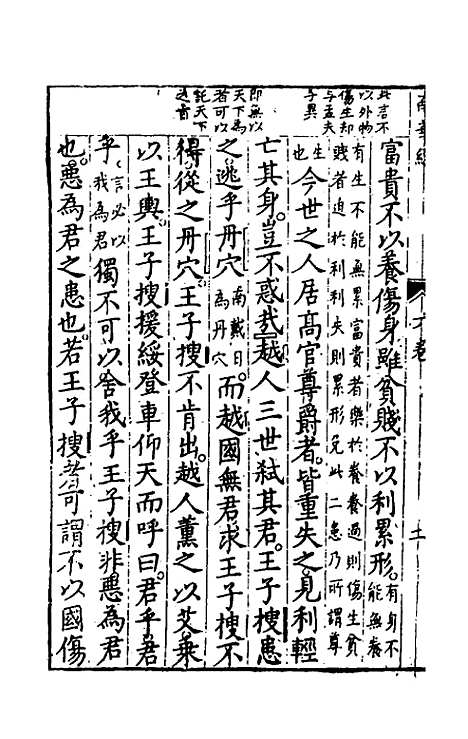 南華經
下卷
十
富貴不以養傷身雖貧賤不以利累形。有身不能無養
有生不能無累富貴者樂於養養過則傷生貧
賤者迫於利利失則累形免此二患乃所謂尊
生也今世之人居高官尊爵者。皆重失之見利輕
亡其身。豈不惑哉越人三世弑其君。王子搜患
之逃乎丹穴南戴日為丹穴。而越國無君求王子搜不
得。從之丹穴。王子搜不肯出。越人薰之以艾。乘
以王輿。王子搜援綏登車仰天而呼曰。君乎君
乎言必以我為君獨不可以舍我乎王子搜非惡為君
也。惡為君之患也。若王子搜者可謂不以國傷
此言不以外物傷生却與孟夫子異
即無以天下為者可以託天下之旨